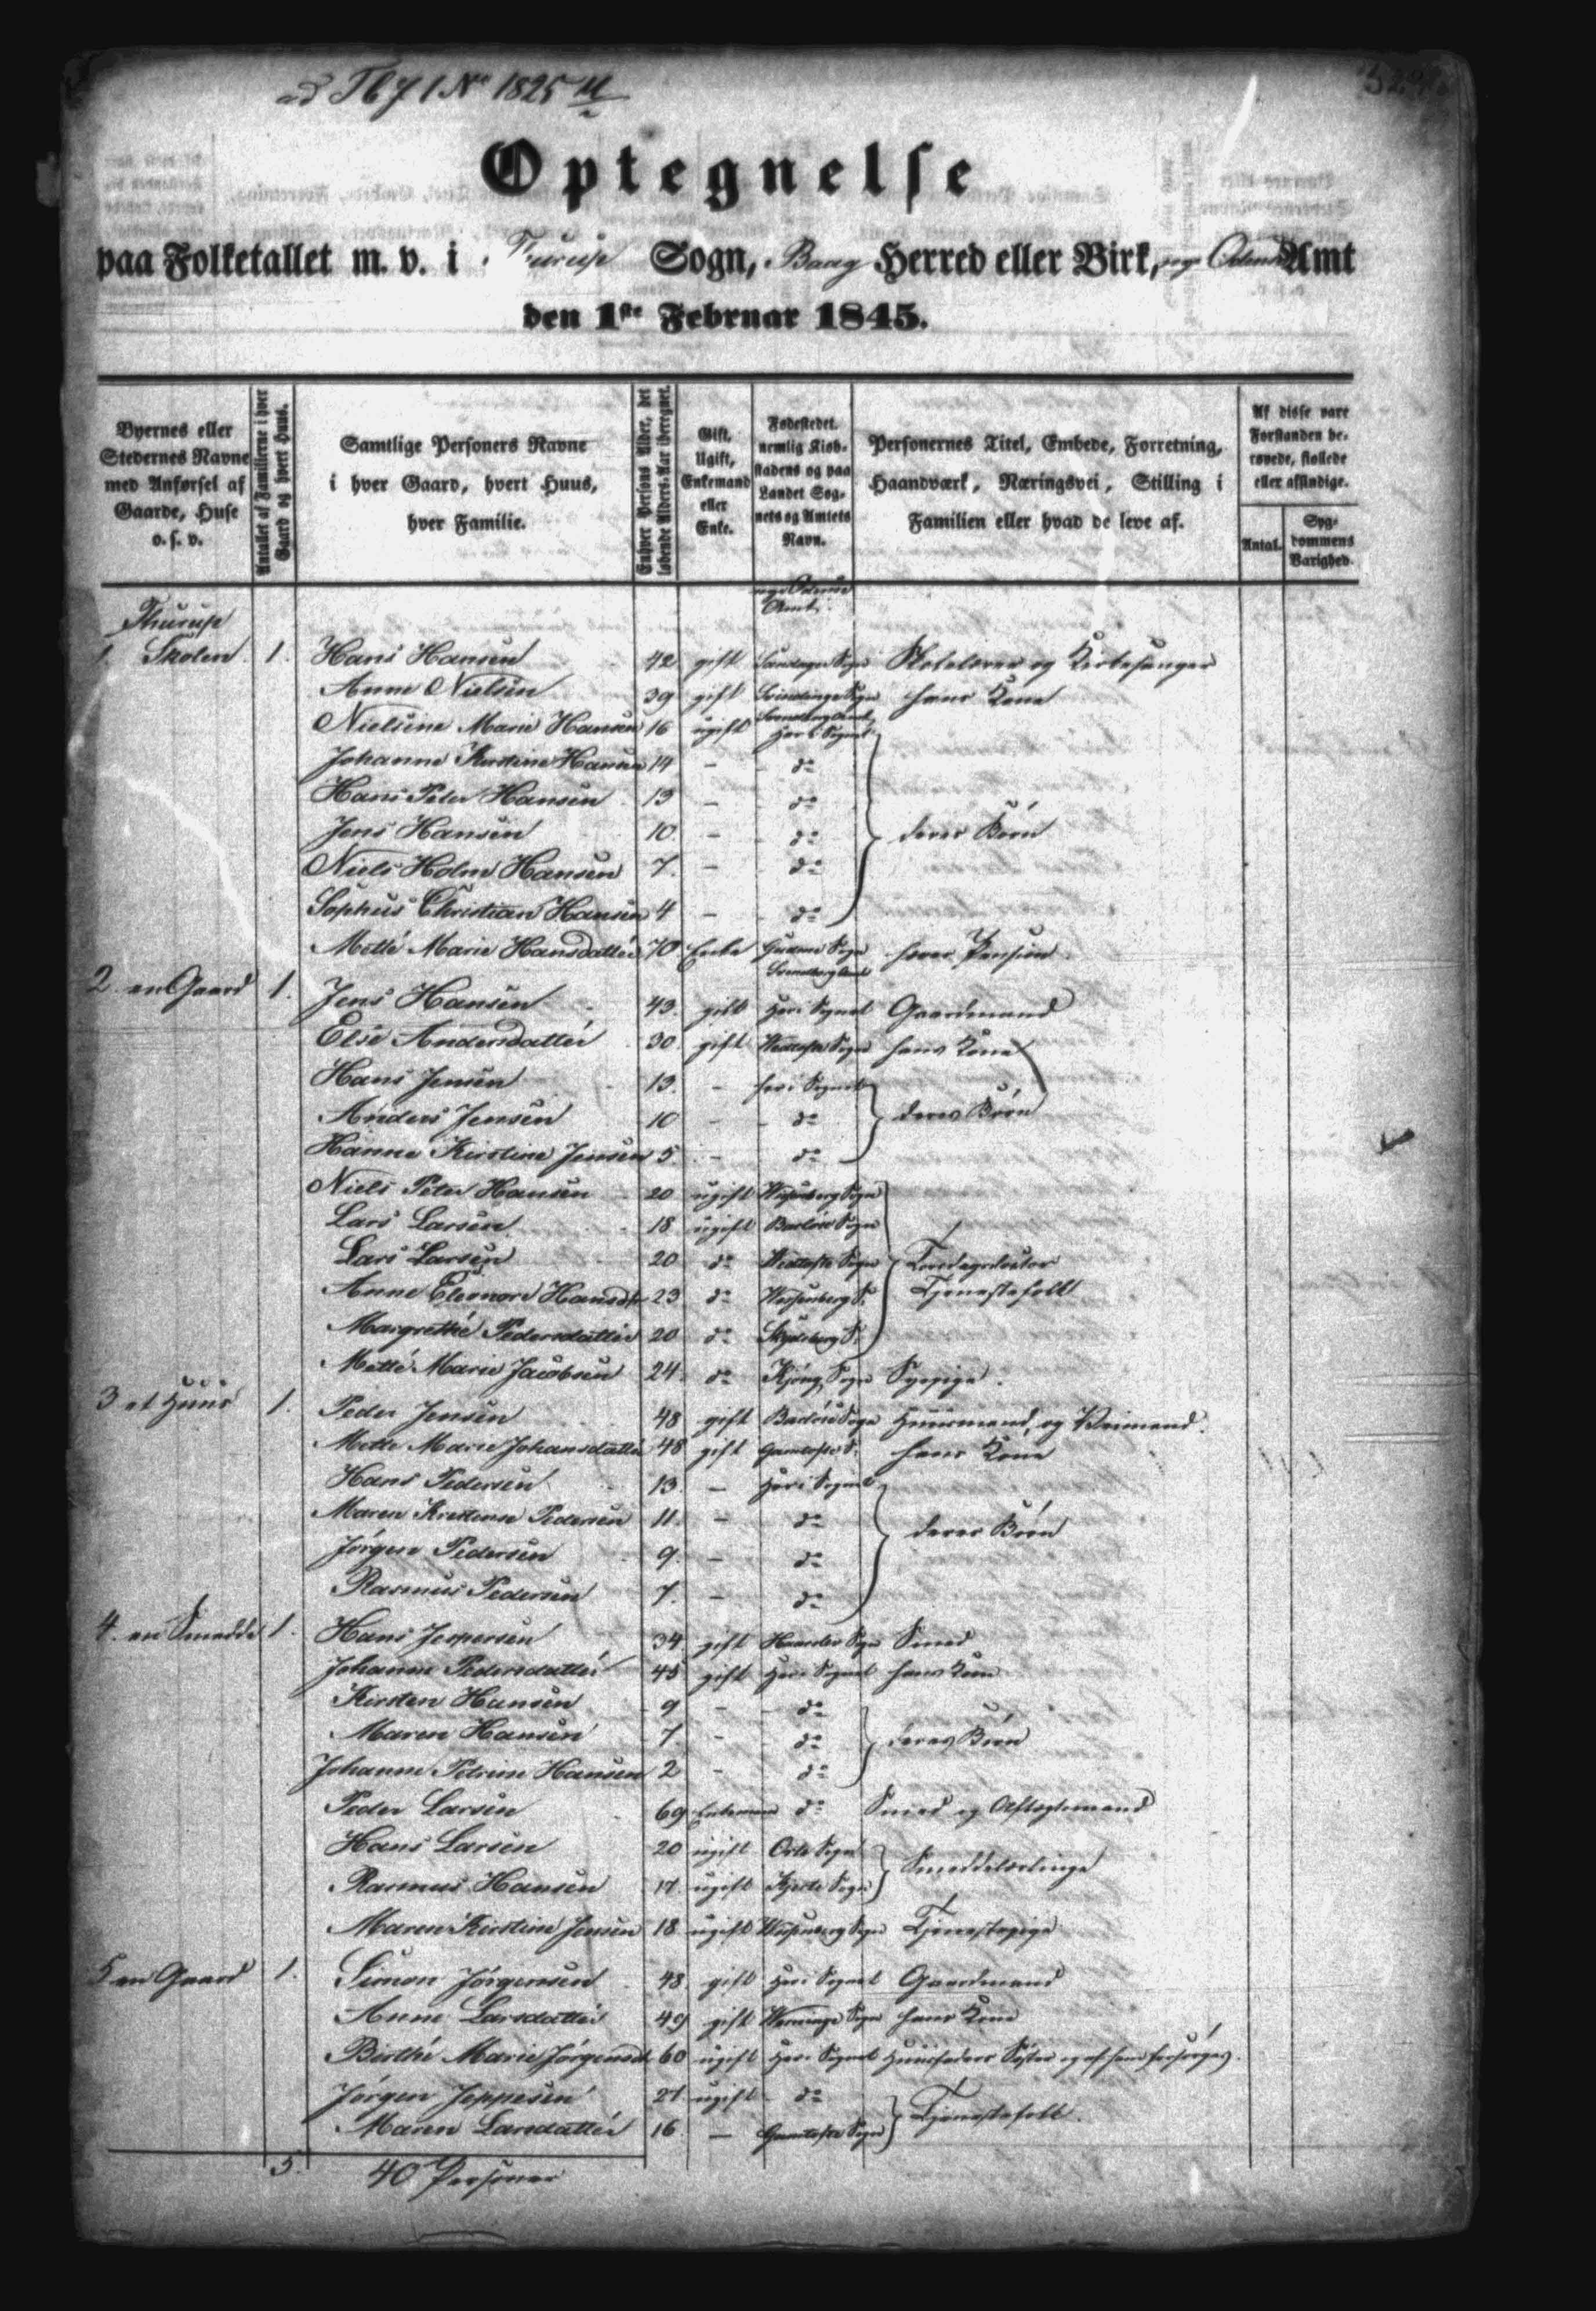 ad Tb 71 No 1825
Optegnelse
paa Folketallet m. v. i Turup Sogn, Baag Herred eller Birk, Odense Amt
den 1ste Februar 1845.
Byernes eller Stedernes Navne med Anførsel af Gaarde, Huse o. s. v.
Antallet af Familierne i hver Gaard og hvert Huus.
Samtlige Personers Navne i hver Gaard, hvert Huus, hver Familie.
Enhver Persons Alder, det løbende Alders-Aar iberegnet.
Gift, Ugift, Enkemand eller Enke.
Fødestedet, nemlig Kiøbstadens og paa Landet Sognets og Amtets Navn.
Personernes Titel, Embede, Forretning, Haandværk, Næringsvei, Stilling i Familien eller hvad de leve af.
Af disse vare Forstanden berøvede, fiollede eller afsindige.
Antal.
Sygdommens Varighed.
Odense Amt.
Thurup
1 Skolen 1. Hans Hansen 42 gift Sandager Sogn Skolelærer og Kirkesanger
Anne Nielsen 39 gift Svindinge Sogn Svendborg Amt hans Kone
Nielsine Marie Hansen 16 ugift Her i Sognet
Johanne Kirstine Hansen 14 – do
Hans Peter Hansen 13 – do
Jens Hansen 10 – do deres Børn
Niels Holm Hansen 7. – do
Sophus Christian Hansen 4 – do
Mette Marie Hansdatter 70 Enke Gudme Sogn Svendborg Amt Pension
2 en Gaard 1. Jens Hansen 43. gift Her i Sognet Gaardmand
Else Andersdatter 30. gift Wedtofte Sogn hans Kone
Hans Jensen 13. – her i Sognet
Anders Jensen 10 – do deres Børn
Hanne Kirstine Jensen 5. – do
Niels Peter Hansen 20 ugift Wissenberg Sogn
Lars Larsen 18 ugift Barløse Sogn
Lars Larsen 20 do Wedtofte Sogn
Anne Eleonore Hansdtr 23 do Wissenberg S. Tjenestefolk
Margrethe Pedersdatter 20 do Skydebjerg S.
Mette Marie Jacobsen 24. do Kjøng Sogn Sypige.
3 et Huus 1. Peder Jensen 48 gift Barløse Sogn Huusmand, og Veimand.
Mette Marie Johansdatter 48 gift Gamtofte S. hans Kone
Hans Pedersen 13. – Her i Sognet
Maren Kirstine Pedersen 11. – do deres Børn
Jørgen Pedersen 9. – do
Rasmus Pedersen 7. – do
4. en Smedde 1. Hans Jespersen 34 gift Haarslev Sogn Smed
Johanne Pedersdatter 45 gift Her i Sognet hans Kone
Kirsten Hansen 9 – do
Maren Hansen 7. – do deres Børn
Johanne Petrine Hansen 2 – do
Peder Larsen 69 Enkemand do Smed og Aftægtsmand
Hans Larsen 20 ugift Orte Sogn Smeddelærlinge
Rasmus Hansen 17. ugift Kjerte Sogn
Maren Kirstine Jensen 18 ugift Wissenberg Sogn Tjenestepige
5 en Gaard 1. Simon Jørgensen 48. gift Her i Sognet Gaardmand
Anne Larsdatter 49 gift Werninge Sogn hans Kone
Birthe Marie Jørgensdt 60 ugift Her i Sognet Huusfaders Søster og af ham forsørges.
Jørgen Jeppesen 21 ugift do Tjenestefolk.
Maren Larsdatter 16 – Gamtofte Sogn
5. 40 Personer